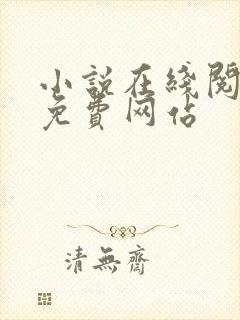 小說在綫閱
免費网站
清無齋